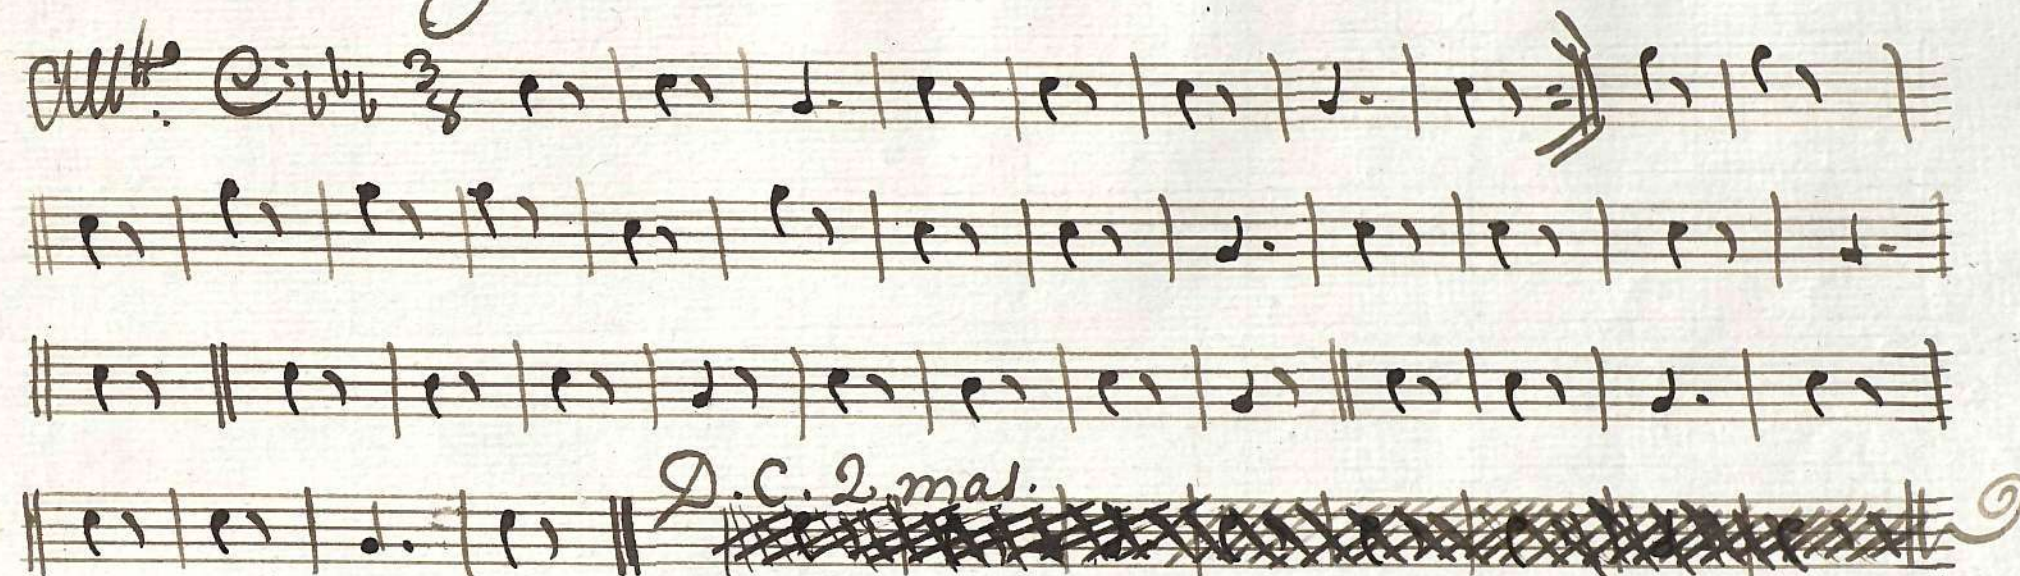 All.º
3/8
D.C. 2 mas.